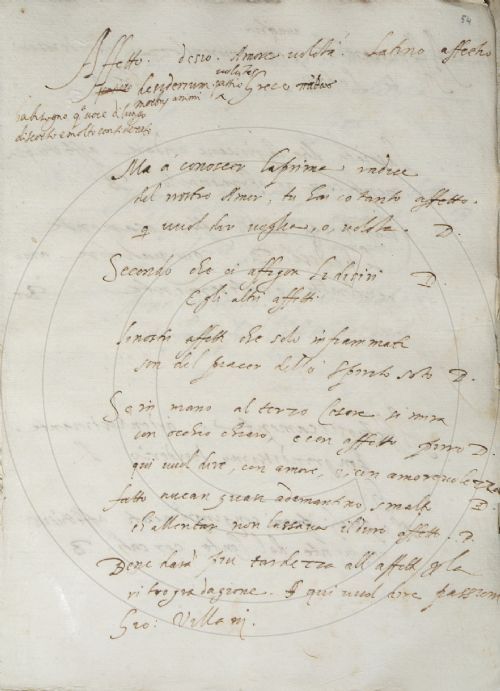 54
Affetto. desio. Amore volõtà. Latino affectus
desyderium voluptas pathos Greco
motus animi
ha bisogno
discorso e molto consideraẽ
Ma à conoscer la prima radice
del nostro Amor, tu hai cotanto affetto.
q̃ vuol dir voglia, o, volõtà. D.
Secondo che ci affigon li disiri D.
E gli altri affetti.
li nostri affetti che solo infiammati
son del piacer dello Spirito Sãto D.
Se in mano al terzo Cesare si mira
con occhio chiaro, e con affetto puro D.
qui vuol dire, con amore, o, con amorevolezza
fatto avean quasi adamantino smalto D.
ch'allentar non lassava il duro affetto. D.
Bene darà più tardezza all affetti
ritrogradazione. E qui vuol dire passione
Gio: Villani.